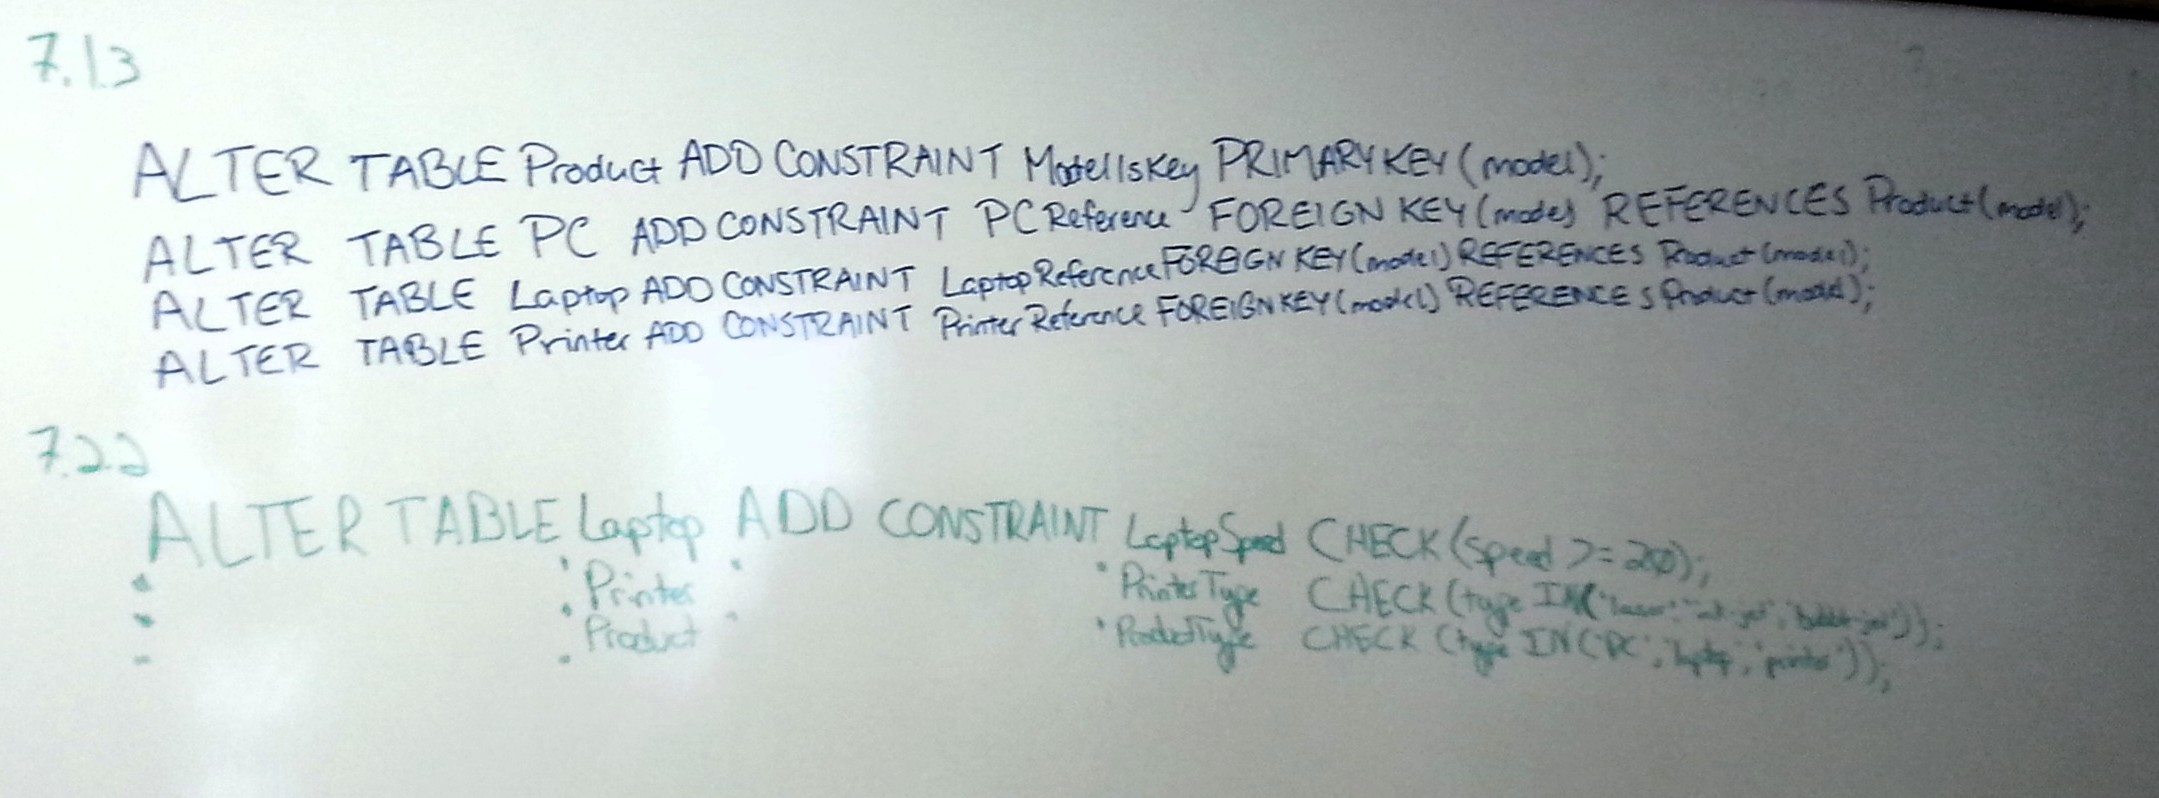 7.1.3
ALTER TABLE Product ADD CONSTRAINT ModelIsKey PRIMARY KEY (model);
ALTER TABLE PC ADD CONSTRAINT PCReference FOREIGN KEY (model) REFERENCES Product (model);
ALTER TABLE Laptop ADD CONSTRAINT LaptopReference FOREIGN KEY (model) REFERENCES Product (model);
ALTER TABLE Printer ADD CONSTRAINT PrinterReference FOREIGN KEY (model) REFERENCES Product (model);
7.2.2
ALTER TABLE Laptop ADD CONSTRAINT LaptopSpeed CHECK (speed >= 2.0);
" " Printer " " PrinterType CHECK (type IN ('laser', 'ink-jet', 'bubble-jet'));
" " Product " " ProductType CHECK (type IN ('PC', 'laptop', 'printer'));